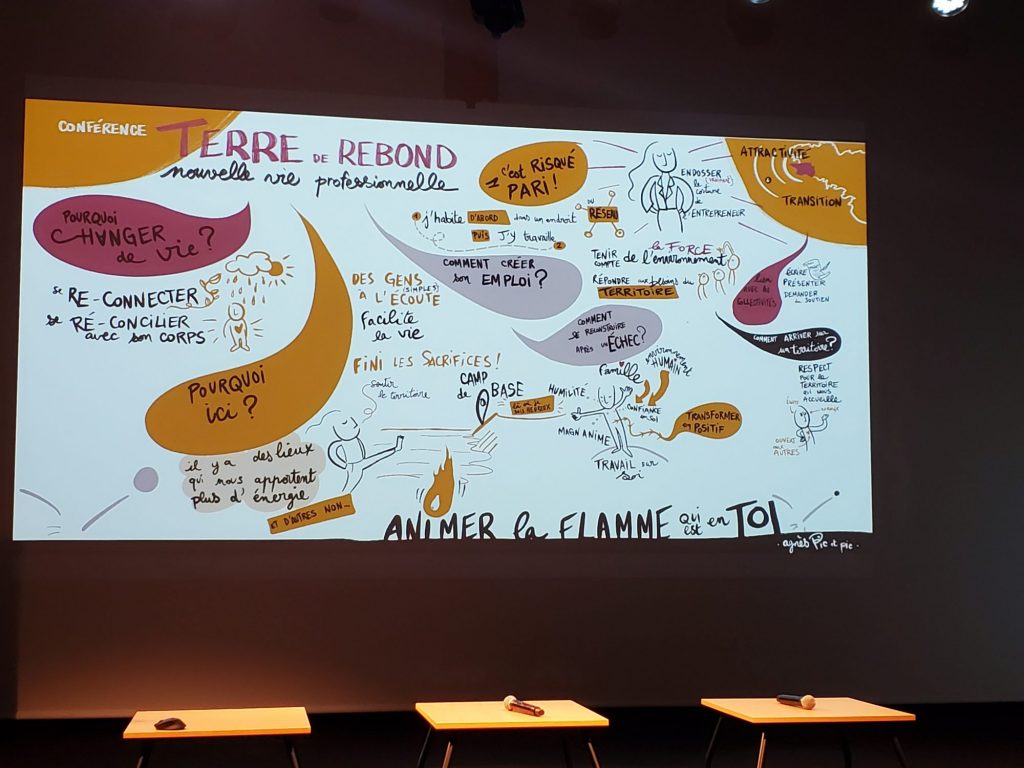 CONFÉRENCE
TERRE DE REBOND
nouvelle vie professionnelle
POURQUOI
CHANGER
de vie?
se RE-CONNECTER
se RÉ-CONCILIER
avec son CORPS
POURQUOI
ici?
il y a des lieux
qui nous apportent
plus d'énergie
ET D'AUTRES NON...
c'est RISQUÉ
1 PARI!
1 j'habite D'ABORD dans un endroit
PUIS J'y travaille 2
DU
RÉSEAU
COMMENT CRÉER
son EMPLOI?
DES GENS
(SIMPLES)
À L'ÉCOUTE
facilite
la vie
FINI LES SACRIFICES!
sentir
le territoire
CAMP
de BASE
là où je
suis heureux
ENDOSSER
le (vraiment)
costume
de
ENTREPRENEUR
TENIR
COMPTE
la FORCE
de l'environnement
RÉPONDRE aux besoins du
TERRITOIRE
COMMENT
SE RECONSTRUIRE
APRÈS un ÉCHEC?
famille
HUMAIN
HUMILITÉ
CONFIANCE
en soi
MAGNANIME
TRAVAIL sur
soi
TRANSFORMER
en POSITIF
ATTRACTIVITÉ
TRANSITION
lien
AVEC les
COLLECTIVITÉS
ÉCRIRE
PRÉSENTER
DEMANDER
du SOUTIEN
COMMENT ARRIVER sur
un territoire?
RESPECT
POUR le
TERRITOIRE
QUI NOUS
ACCUEILLE
OUVERT
aux
AUTRES
ANIMER la FLAMME qui est en TOI
. agnès Pic et pic .